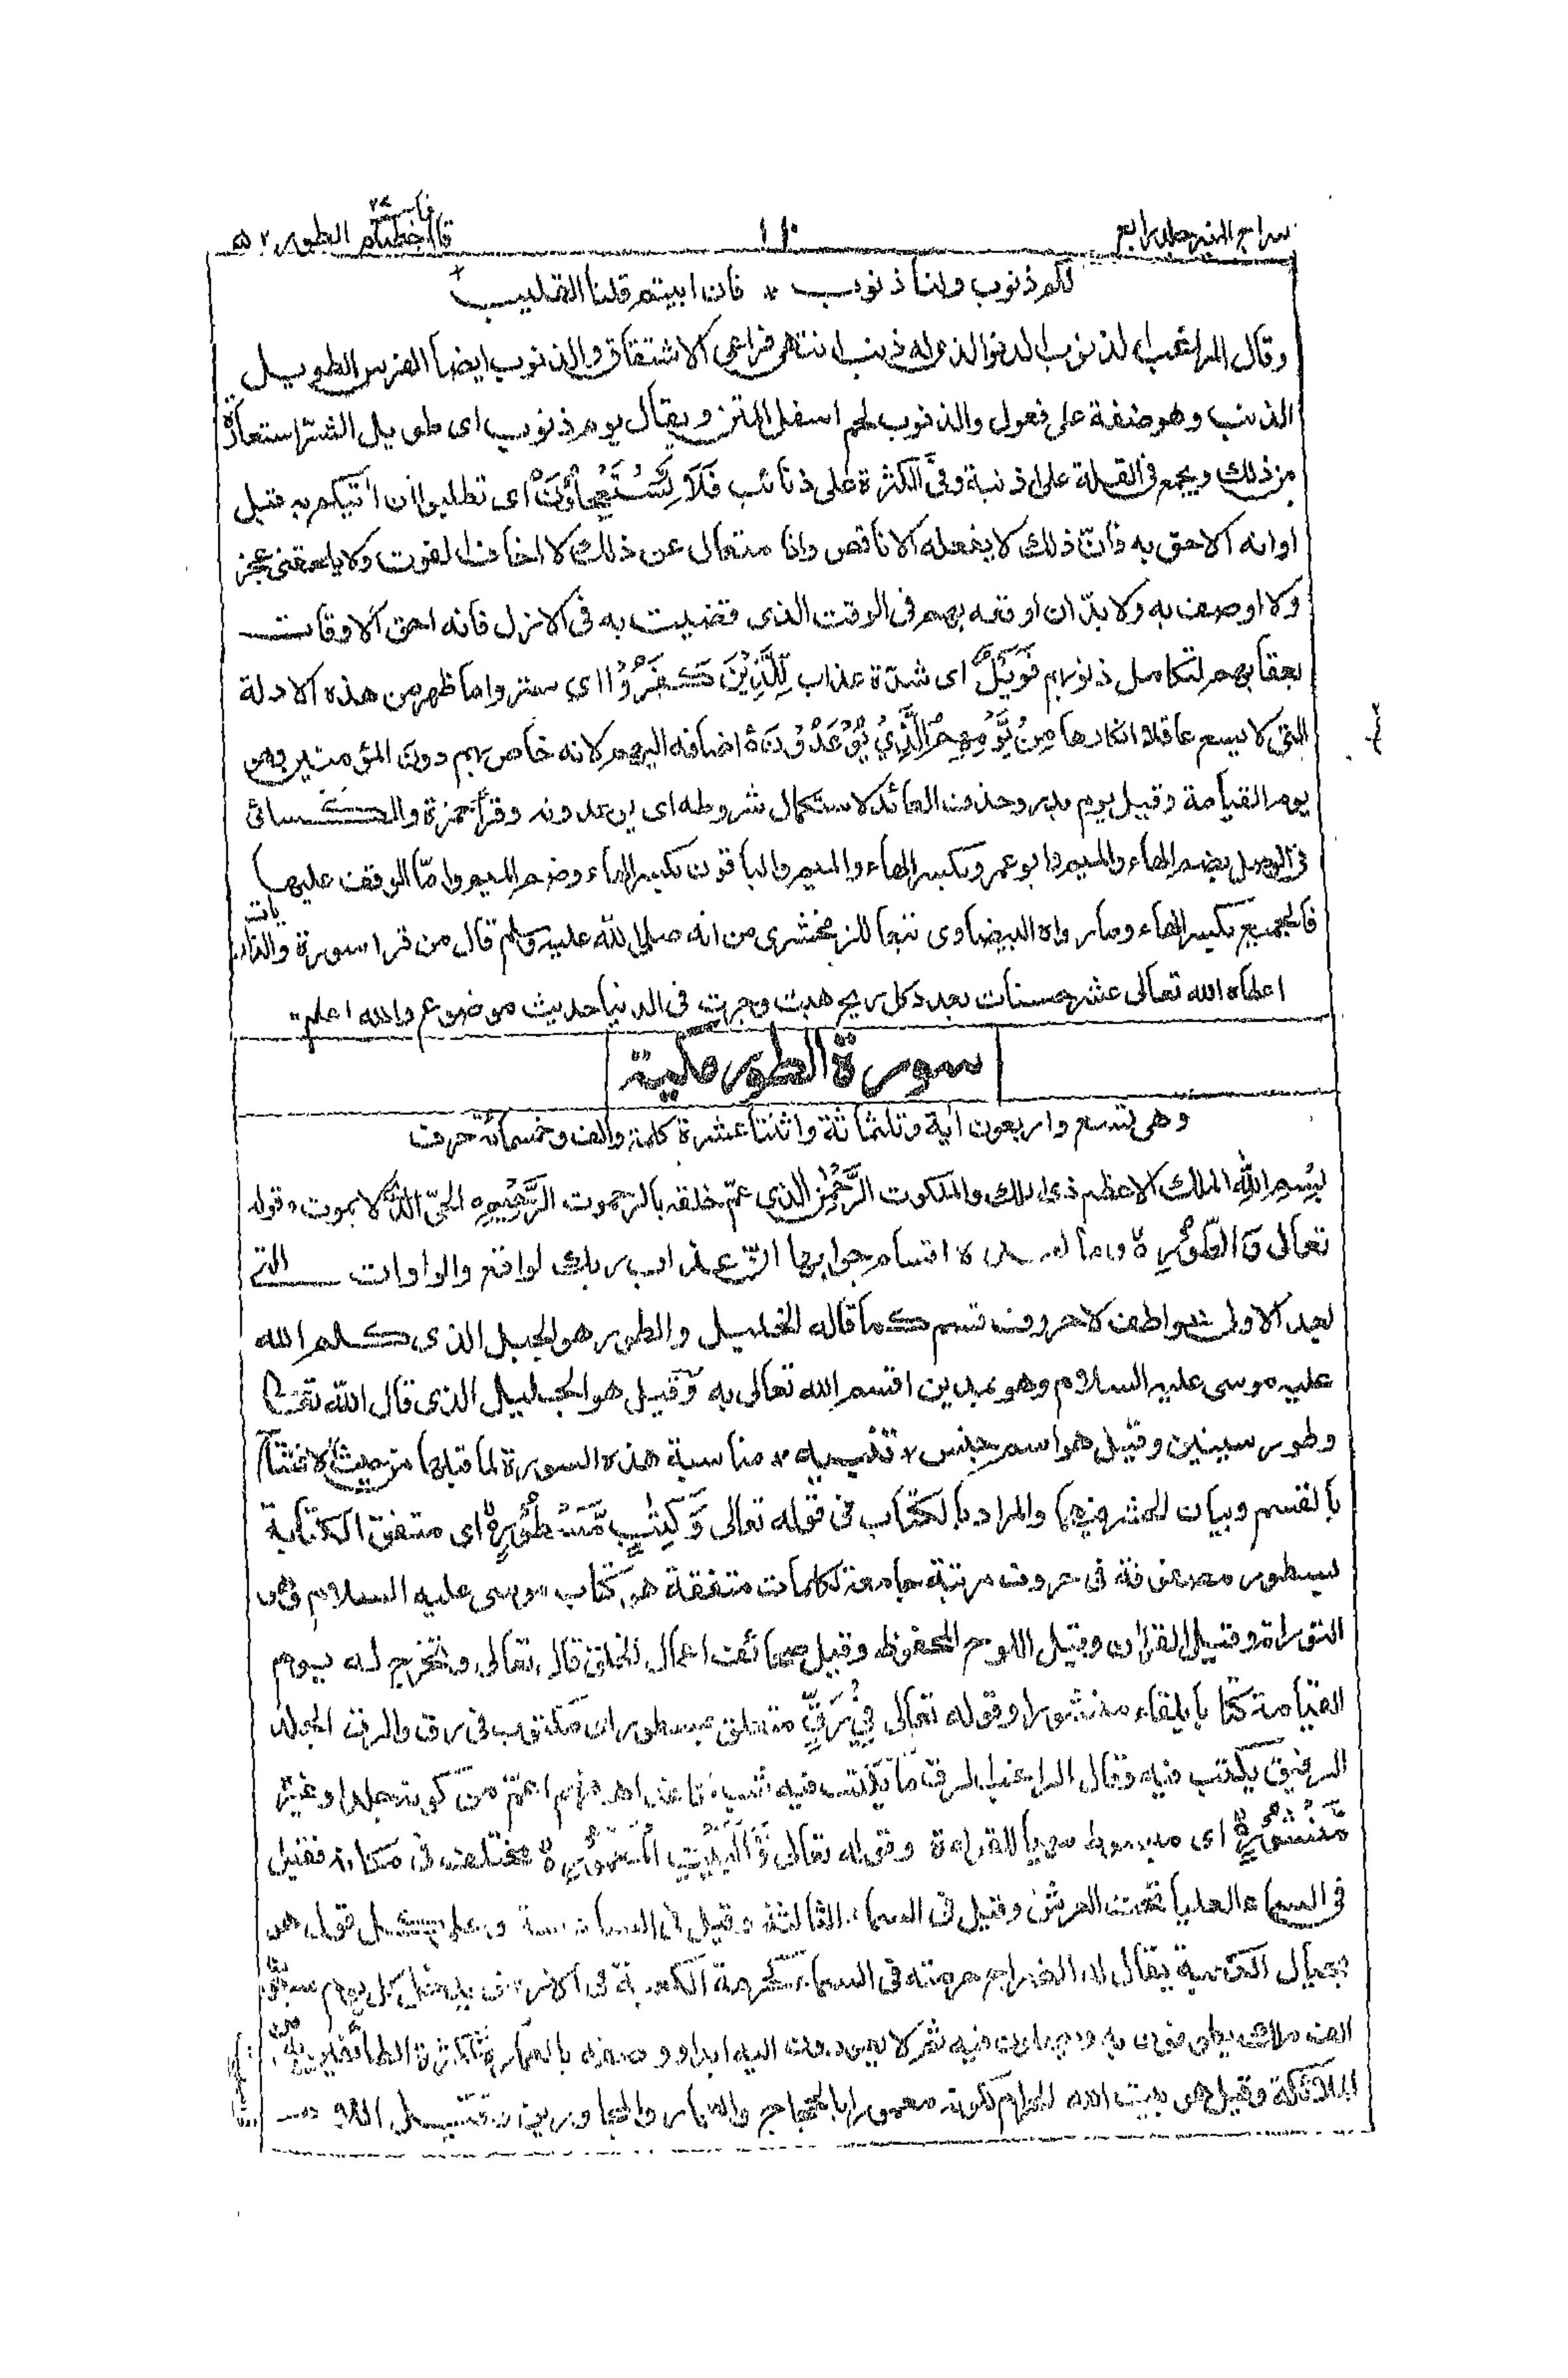 سراج المنير جلد رابع ١١٠ قال فما خطبكم ٢٧ الطور ٥٢
لكم ذنوب ولنا ذنوب * فان ابيتم قلنا القليب
وقال الراغب الذنوب الدلو الذى له ذنب انتهى فراعى الاشتقاق والذنوب ايضا الفرس الطويل
الذنب وهو صفة على فعول والذنوب لحم اسفل المتن ويقال يوم ذنوب اى طويل الشر استعارة
من ذلك ويجمع فى القلة على اذنبة وفى الكثرة على ذنائب فَلَا يَسْتَعْجِلُوْنَ اى تطلبوا أن أتيكم به قبل
اوانه الاحق به فان ذلك لا يفعله الا ناقص وانا متعال عن ذلك لا اخاف الفوت ولا يلحقنى عجز
ولا اوصف به ولا بدّ ان اوقعه بهم فى الوقت الذى قضيت به فى الازل فانه احق الاوقات
بعقابهم لتكامل ذنوبهم فَوَيْلٌ اى شدّة عذاب لِّلَّذِيْنَ كَفَرُوْا اى ستروا ما ظهر من هذه الادلة
التى لا يسع عاقلا انكارها مِنْ يَّوْمِهِمُ الَّذِيْ يُوْعَدُوْنَ اضافه اليهم لانه خاص بهم دون المؤمنين وهو
يوم القيامة وقيل يوم بدر وحذف العائد لاستكمال شروطه اى يوعدونه وقرأ حمزة والكسائى
فى الوصل بضم الهاء والميم وابو عمرو بكسر الهاء والميم والباقون بكسر الهاء وضم الميم وامّا الوقف عليها
فالجميع بكسر الهاء وما رواه البيضاوى تبعا للزمخشرى من انه صلى الله عليه وسلم قال من قرا سورة والذاريات
اعطاه الله تعالى عشر حسنات بعدد كل ريح هبت وجرت فى الدنيا حديث موضوع والله اعلم
سورة الطور مكية
وهى تسع واربعون اٰية وثلثمائة واثنتا عشرة كلمة والف وخمسمائة حرف
بِسْمِ اللّٰهِ الملك الاعظم ذى الملك والملكوت الرَّحْمٰنِ الذى عمّ خلقه بالرحموت الرَّحِيْمِ الحىّ الذى لا يموت وقوله
تعالى وَالطُّوْرِ وما بعده اقسام جوابها انّ عذاب ربك لواقع والواوات التى
بعد الاولى عواطف لا حروف قسم كما قاله الخليل والطور هو الجبل الذى كلم الله
عليه موسى عليه السلام وهو بمدين اقسم الله تعالى به وقيل هو الجبل الذى قال الله تعالى
وطور سينين وقيل هو اسم جنس * تنبيه * مناسبة هذه السورة لما قبلها من حيث الافتتاح
بالقسم وبيان الحشر فيهما والمراد بالكتاب فى قوله تعالى وَكِتٰبٍ مَّسْطُوْرٍ اى متفق الكتابة
بسطور مصفوفة فى حروف مرتبة جامعة لكلمات متفقة هو كتاب موسى عليه السلام وهو
التوراة وقيل القراٰن وقيل اللوح المحفوظ وقيل صحائف اعمال الخلق قال تعالى ونخرج له يوم
القيامة كتابا يلقاه منشورا وقوله تعالى فِيْ رَقٍّ متعلق بمسطور اى مكتوب فى رق والرق الجلد
الرقيق يكتب فيه وقال الراغب الرق ما يكتب فيه شبه كاغد اهـ فهو اعم من كونه جلدا وغيره
مَّنْشُوْرٍ اى مبسوط مهيا للقراءة وقوله تعالى وَّالْبَيْتِ الْمَعْمُوْرِ مختلف فى مكانه فقيل
فى السماء العليا تحت العرش وقيل فى السماء الثالثة وقيل فى السادسة وعلى كل قول هو
بحيال الكعبة يقال له الضراح حرمته فى السماء كحرمة الكعبة فى الارض يدخله كل يوم سبعون
الف ملك يطوفون به ويصلون فيه ثم لا يعودون اليه ابدا ووصفه بالعمارة لكثرة الطائفين به من
الملائكة وقيل هو بيت الله الحرام لكونه معمورا بالحجاج والعمار والمجاورين وقيل